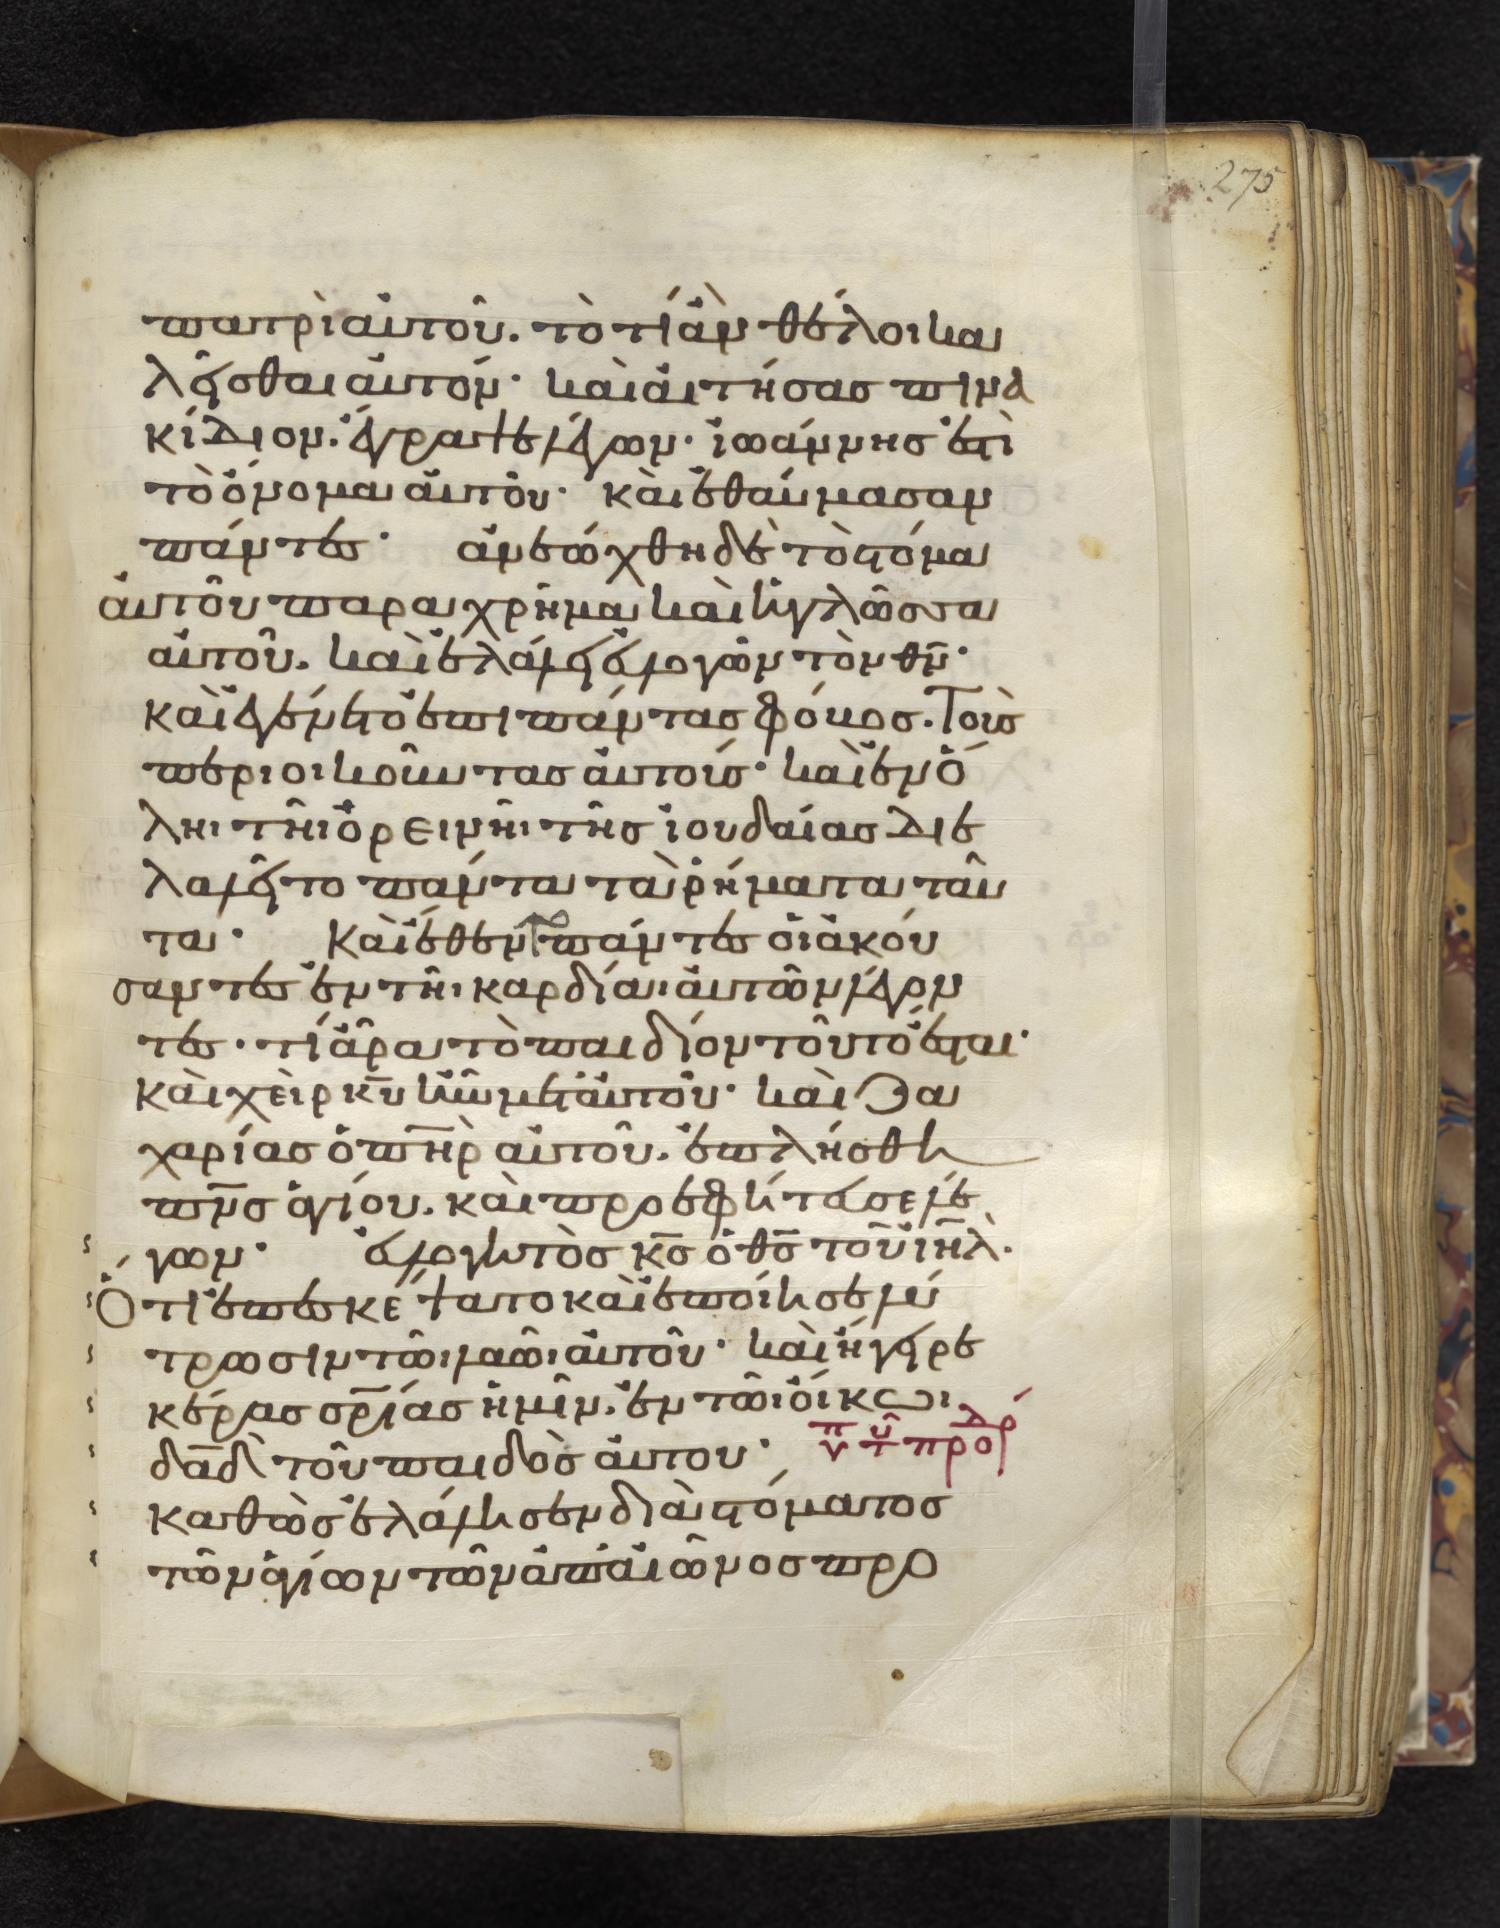 275
πατρὶ αὐτοῦ. τὸ τί ἂν θέλοι κα
λεῖσθαι αὐτόν· καὶ αἰτήσας πινα
κίδιον. ἔγραψε λέγων· ἰωάννης ἐστὶ
τὸ ὄνομα αὐτοῦ· καὶ ἐθαύμασαν
πάντες· ἀνεώχθη δὲ τὸ στόμα
αὐτοῦ παραχρῆμα καὶ ἡ γλῶσσα
αὐτοῦ. καὶ ἐλάλει εὐλογῶν τὸν θν̅·
καὶ ἐγένετο ἐπι πάντας φόβος. Τοὺς
περιοικοῦντας αὐτούς· καὶ ἐν ὅ
ληι τῆι ὀρεινῆι τῆς ἰουδαίας διε
λαλεῖτο πάντα τὰ ῥήματα ταῦ
τα· Καὶ ἔθεντο πάντες οἱ ἀκού
σαντες ἐν τῆι καρδίαι αὐτῶν λέγον
τες· τί ἄρα τὸ παιδίον τοῦτο ἔσται·
καὶ χεὶρ κυ̅ ἦν μετ αὐτοῦ· καὶ Ζα
χαρίας ὁ πηρ̅ αὐτοῦ. ἐπλήσθη
πνς̅ ἁγίου. καὶ προεφήτευσε λέ
γων· εὐλογητὸς κς̅ ὁ θς̅ τοῦ ιηλ̅.
Ὅτι ἐπεσκέψατο καὶ ἐποίησε λύ
τρωσιν τῶι λαῶι αὐτοῦ· καὶ ἤγειρε
κέρας σρ̅ίας ἡμῖν. ἐν τῶι οἴκωι
δαδ̅ τοῦ παιδὸς αὐτου·
καθὼς ἐλάλησεν διὰ στόματος
τῶν ἁγίων τῶν ἀπ αἰῶνος προ